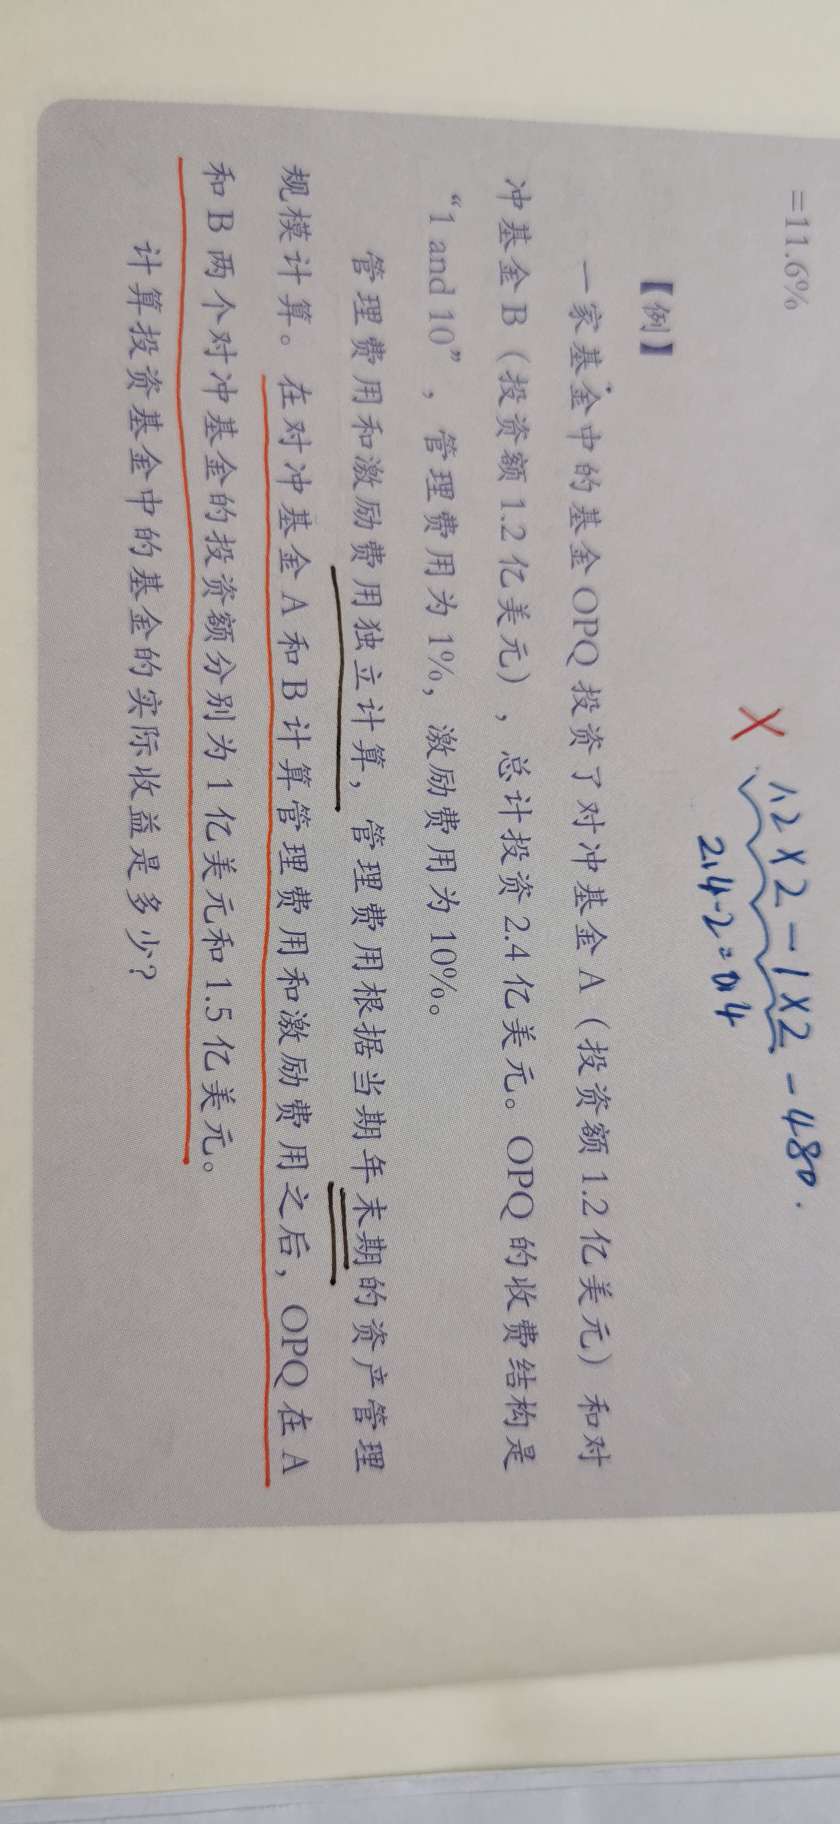 =11.6%
12×2-1×2-480.
2.4-2=0.4
【例】
一家基金中的基金OPQ投资了对冲基金A（投资额1.2亿美元）和对
冲基金B（投资额1.2亿美元），总计投资2.4亿美元。OPQ的收费结构是
“1 and 10”，管理费用为1%，激励费用为10%。
管理费用和激励费用独立计算，管理费用根据当期年末期的资产管理
规模计算。在对冲基金A和B计算管理费用和激励费用之后，OPQ在A
和B两个对冲基金的投资额分别为1亿美元和1.5亿美元。
计算投资基金中的基金的实际收益是多少？